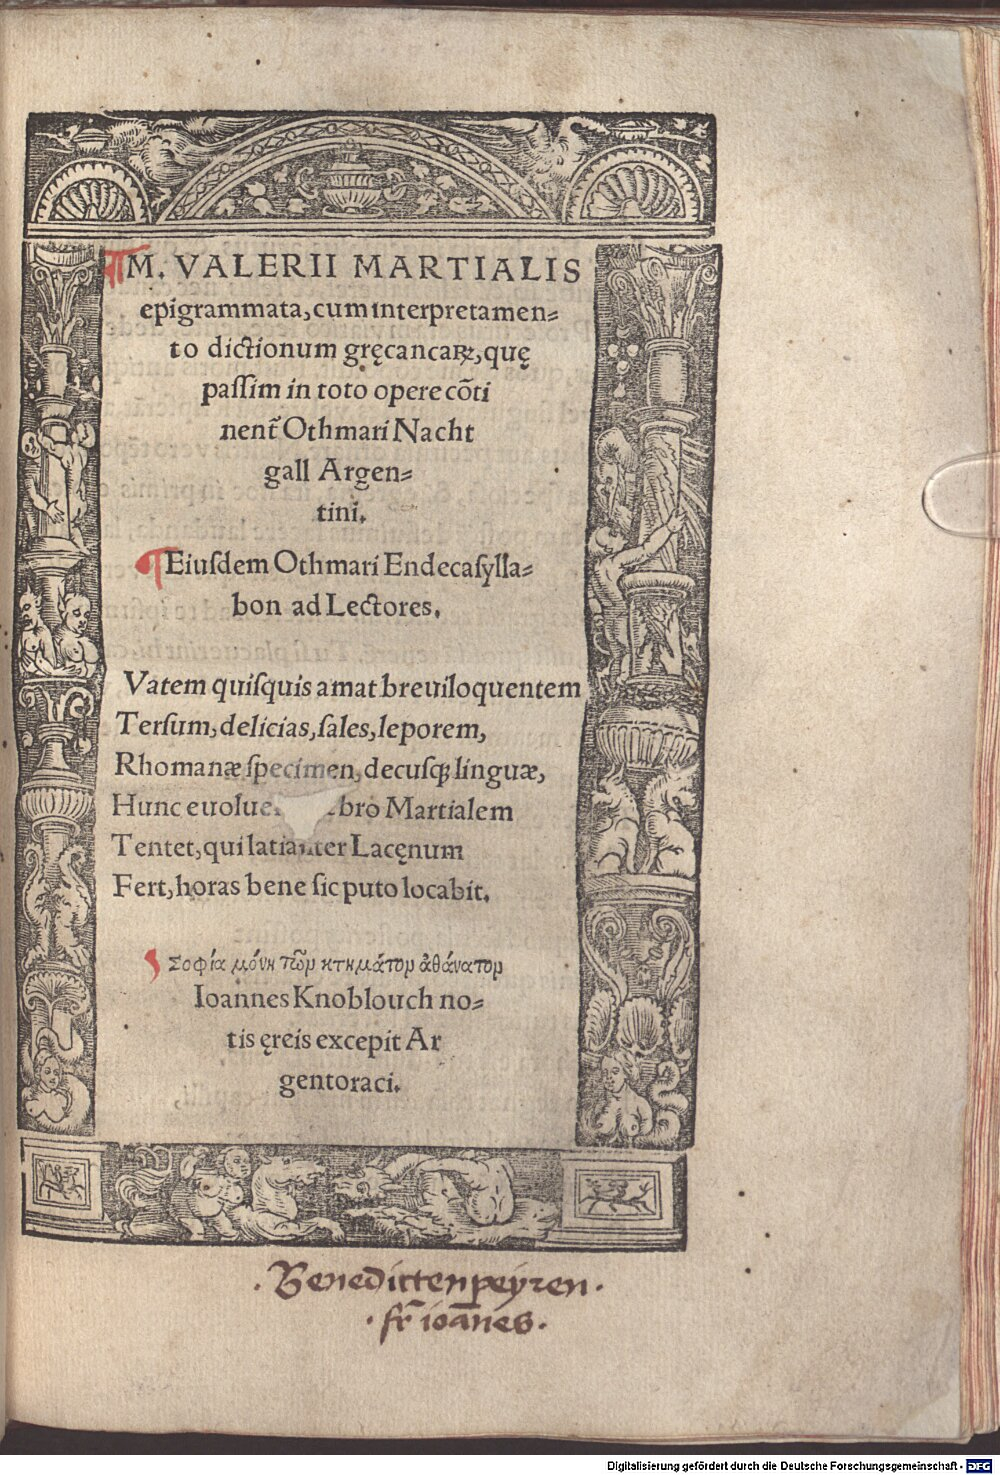 M. VALERII MARTIALIS
epigrammata, cum interpretamen⸗
to dictionum gręcancaꝝ, quę
passim in toto opere cõti
nent̃ Othmari Nacht
gall Argen⸗
tini.
Eiuſdem Othmari Endecaſylla⸗
bon ad Lectores.
Vatem quiſquis amat breuiloquentem
Terſum, delicias, ſales, leporem,
Rhomanæ ſpecimen, decuſqꝫ linguæ,
Hunc euolue bro Martialem
Tentet, qui latianter Lacęnum
Fert, horas bene ſic puto locabit.
Σοφία μόνη τῶν κτημάτον ἀθάνατον
Ioannes Knoblouch no⸗
tis ęreis excepit Ar
gentoraci.
. Benedictenpeÿren .
. fr̃ ioãnes .
Digitalisierung gefördert durch die Deutsche Forschungsgemeinschaft - DFG